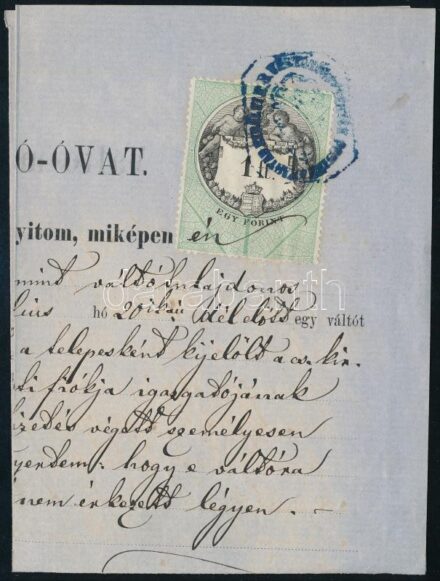 Ó-ÓVAT.
1 ft.
EGY FORINT
yitom, miképen én
mint váltótulajdonos
hó 20ikán kéldött egy váltót
a telepesként kijelölt a cs. kir.
ti fiókja igazgatójának
végett személyesen
hogy e váltóra
nem érkezett légyen. –
darabanth